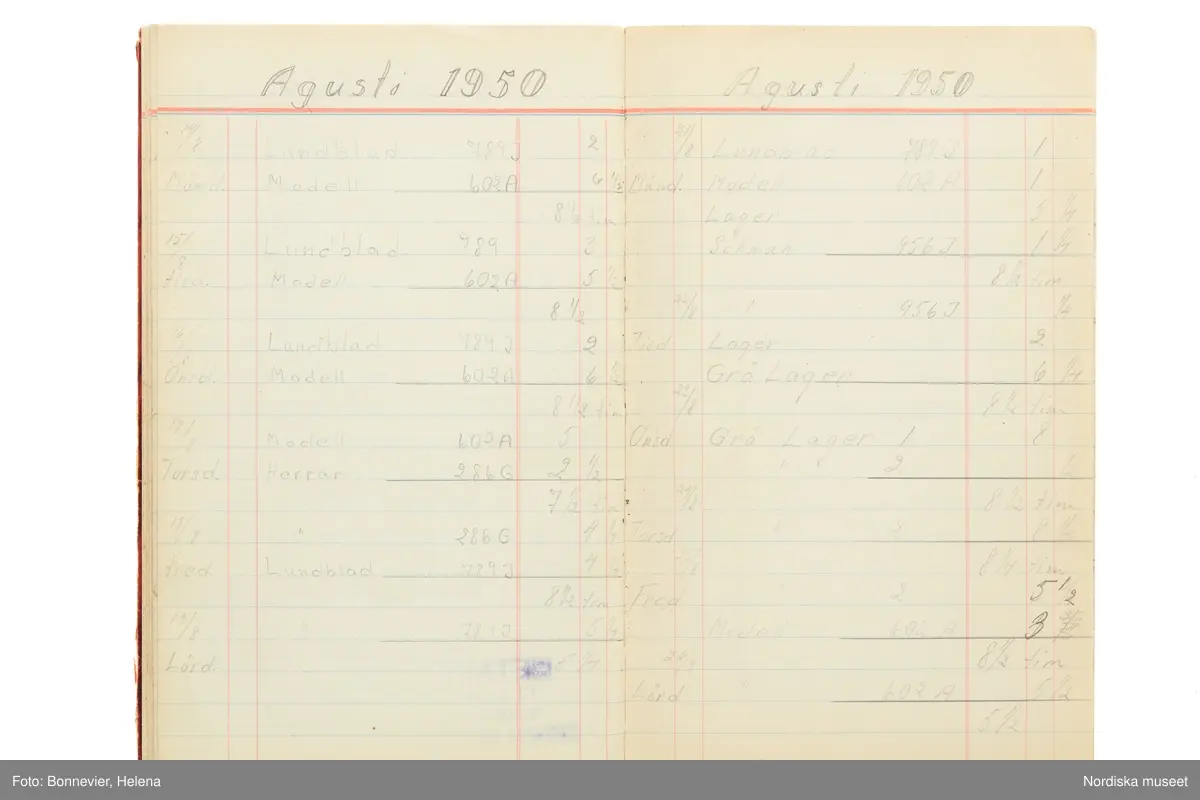 Agusti 1950
14/8 Lundblad 789J 2
Månd. Modell 602A 6 1/2
8 1/2 tim
15/8 Lundblad 789 3
tisd. Modell 602A 5 1/2
8 1/2
Lundblad 789J 2
Onsd. Modell 602A 6 1/2
8 1/2 tim
Modell 602A 5
Torsd. Herrar 286G 2 1/2
7 1/2 tim
18/8 " 286G 4
fred. Lundblad 789J 4
8 1/2 tim
19/8 " 789J 5
Lörd.
Agusti 1950
21/8 Lundblad 789J 1
Månd. Modell 602A 1
Lager 5
956J 1
8 1/2 tim
22/8 " 956J
Tisd Lager 2
Grå Lager 6
8 1/2 tim
Onsd Grå Lager 1 8
" " 2 1/2
24/8 8 1/2 tim
Torsd " 2 8 1/2
8 1/2 tim
Fred " 2 5 1/2
Modell 602A 3
8 1/2 tim
Lörd " 602A 5 1/2
5 1/2
Foto: Bonnevier, Helena
Nordiska museet